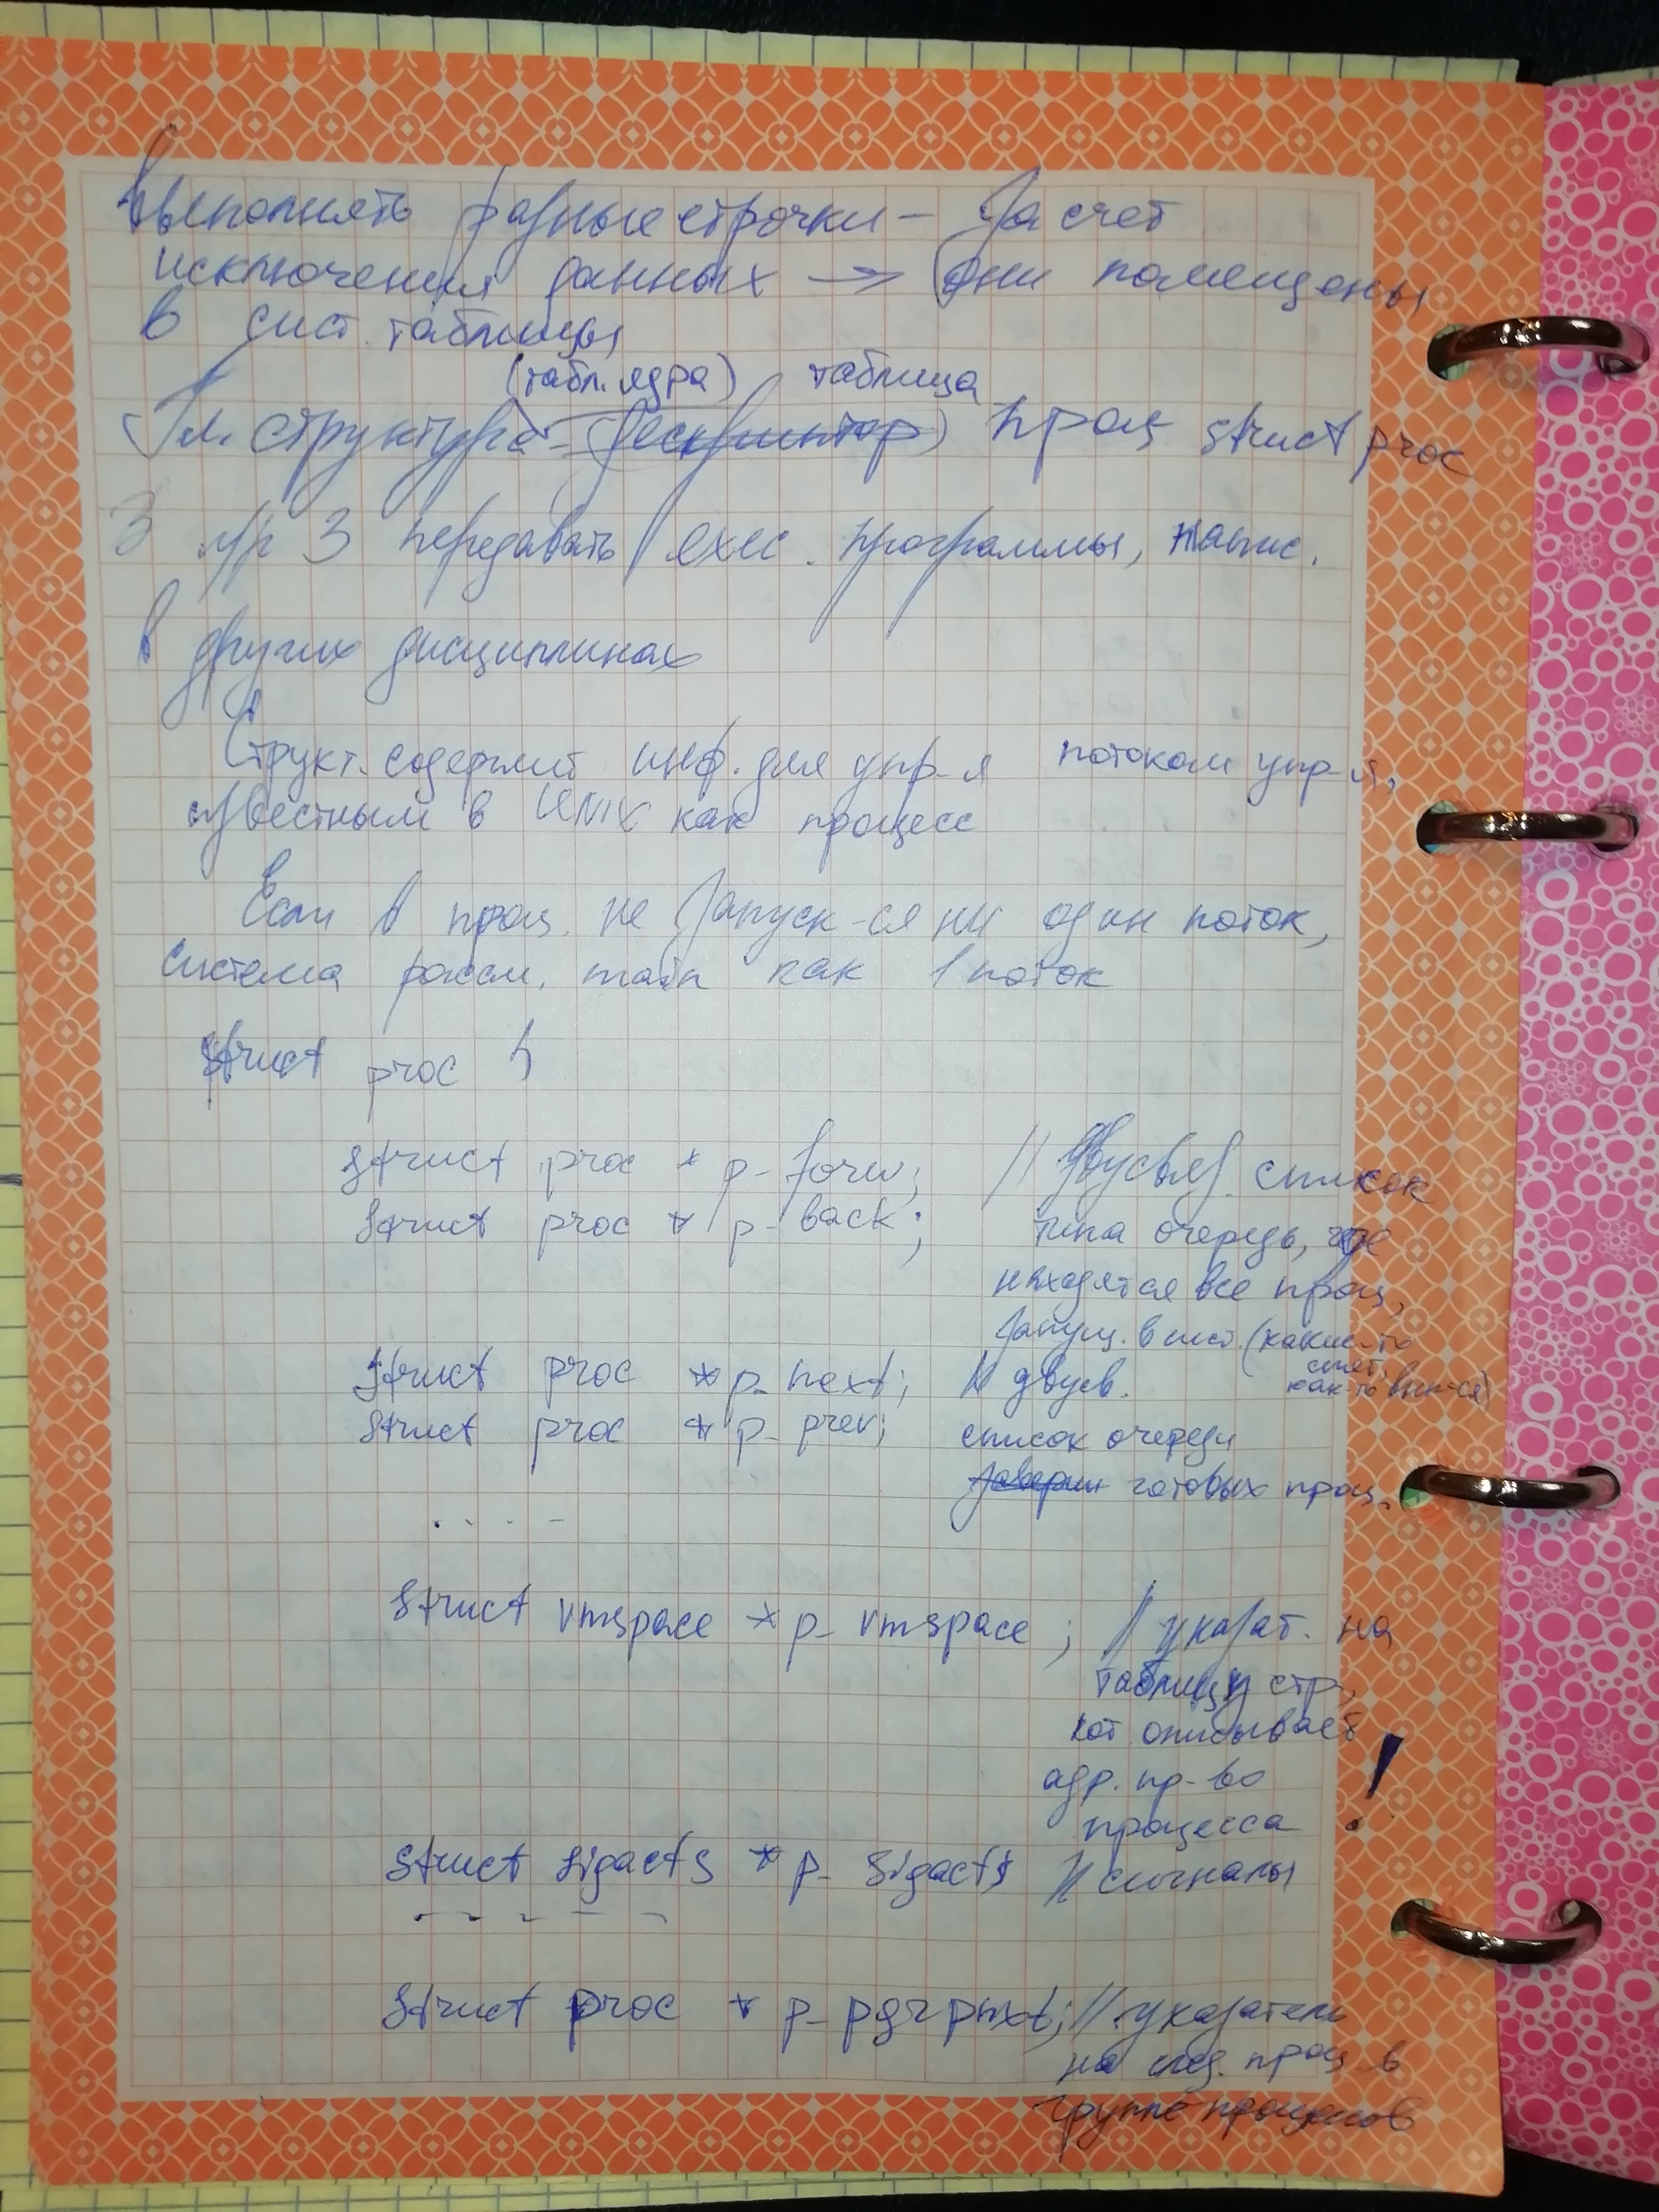 выполнять разные строчки – за счет
исключения данных → они помещены
в сист. таблицы
(табл. ядра) таблица
Гл. структура – (дескриптор) проц struct proc
пр 3 передавать exec. программы, напис.
в других дисциплинах
Структ. содержит инф. для упр-я потоком упр-я,
известным в UNIX как процесс
Если в проц. не запуск-ся ни один поток,
система рассм. main как 1 поток
struct proc {
struct proc * p_forw; // Двусвяз. список
struct proc * p_back; типа очередь, где
находятся все проц,
запущ. в сист. (какие-то
спят,
как-то вып-ся)
struct proc *p_next; // двусв.
struct proc *p_prev; список очереди
заверш готовых проц.
. . . . –
struct vmspace *p_vmspace; // указат. на
таблицу стр.,
кот описывает
адр. пр-во
процесса !
struct sigacts *p_sigacts // сигналы
- - - - - -
struct proc * p_pgrpnxt; // указатель
на след. проц в
группе процессов